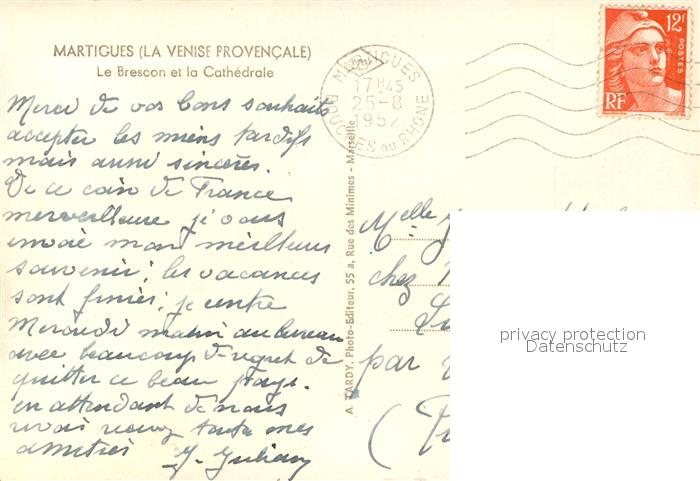 MARTIGUES (LA VENISE PROVENÇALE)
Le Brescon et la Cathédrale
MARTIGUES
17H45
25-8
1952
BOUCHES DU RHONE
12F
POSTES
RF
Merci de vos bons souhaits
accepter les miens tardifs
mais aussi sincères.
De ce coin de France
merveilleux je vous
envoie mon meilleur
souvenir; les vacances
sont finies, je rentre
Mercredi matin au bureau
avec beaucoup de regret de
quitter ce beau pays.
en attendant de nous
revoir recevez toutes mes
amitiés
A. TARDY, Photo-Editeur, 55 a, Rue des Minimes - Marseille
Melle
chez
par
privacy protection
Datenschutz